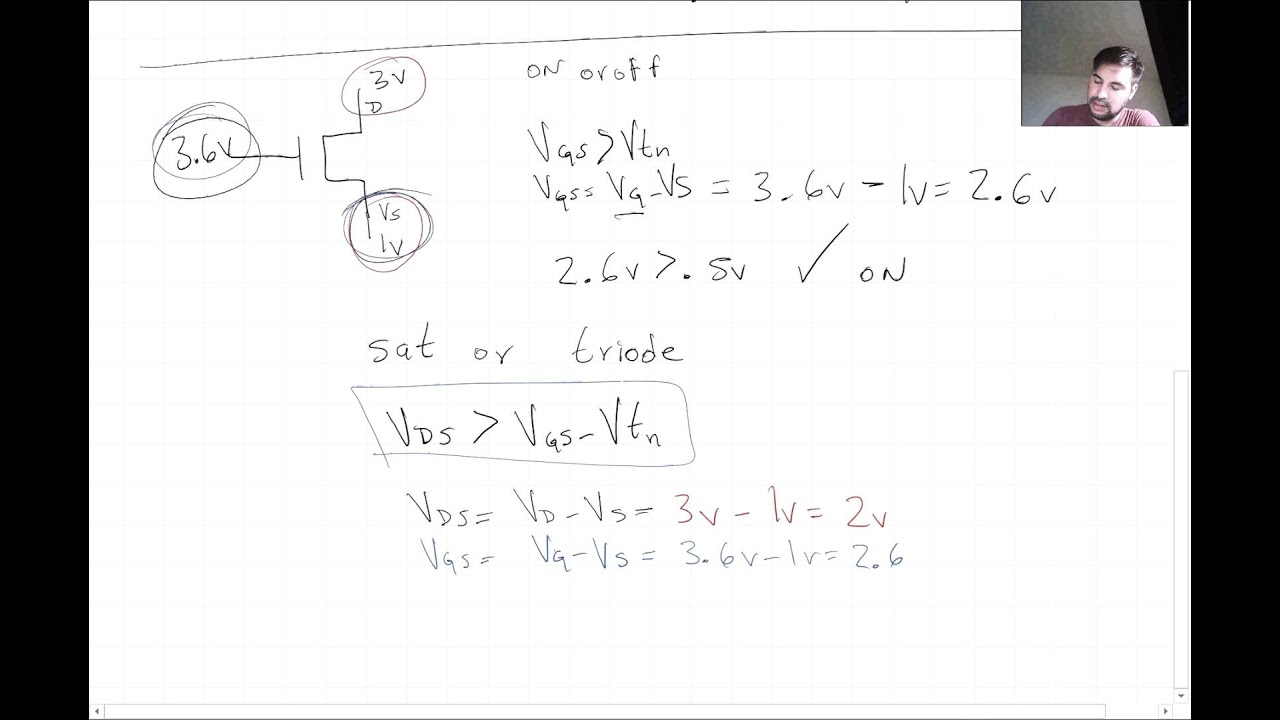 3v
D
3.6v
Vs
1v
ON or off
VGS > Vtn
VGS = VG - VS = 3.6v - 1v = 2.6v
2.6v > .5v ✓ ON
sat or triode
VDS > VGS - Vtn
VDS = VD - VS = 3v - 1v = 2v
VGS = VG - VS = 3.6v - 1v = 2.6